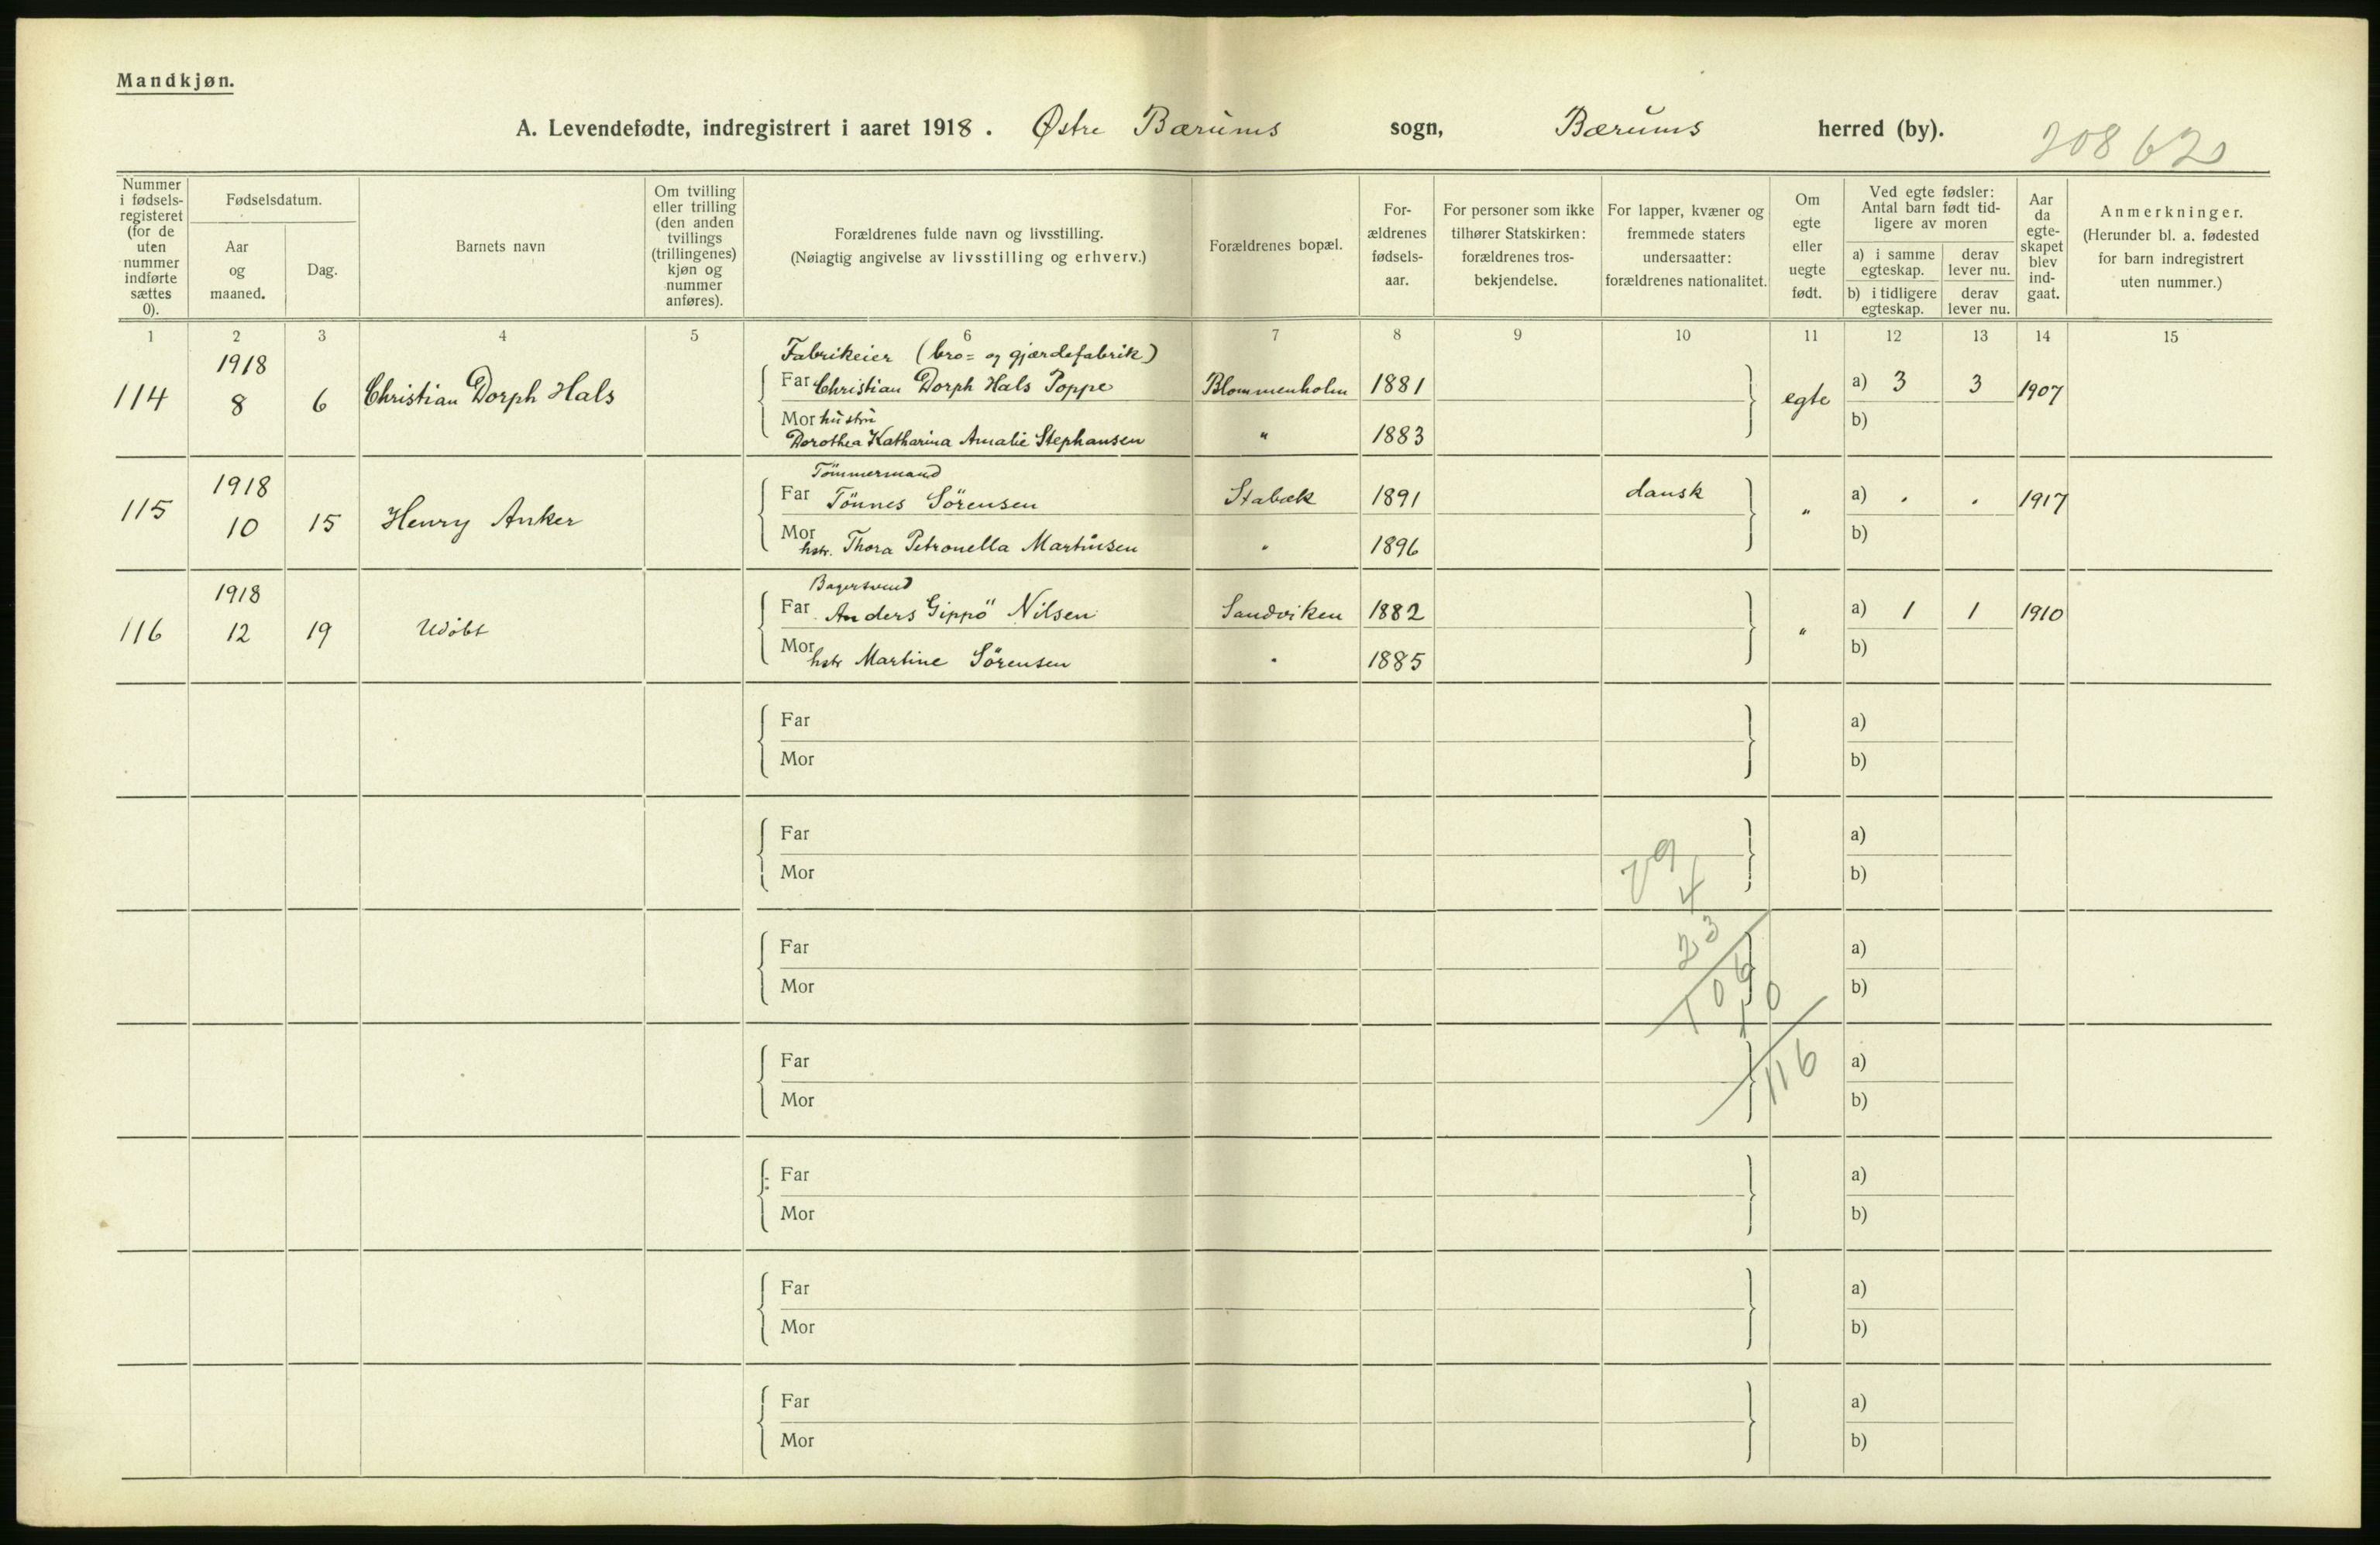 Mandkjøn.
A. Levendefødte, indregistrert i aaret 1918. Østre Bærums sogn, Bærums herred (by).
208 620
Nummer i fødselsregisteret (for de uten nummer indførte sættes 0).
Fødselsdatum.
Aar og maaned.
Dag.
Barnets navn
Om tvilling eller trilling (den anden tvillings (trillingenes) kjøn og nummer anføres).
Forældrenes fulde navn og livsstilling.
(Nøiagtig angivelse av livsstilling og erhverv.)
Forældrenes bopæl.
Forældrenes fødselsaar.
For personer som ikke tilhører Statskirken: forældrenes trosbekjendelse.
For lapper, kvæner og fremmede staters undersaatter: forældrenes nationalitet.
Om egte eller uegte født.
Ved egte fødsler: Antal barn født tidligere av moren
a) i samme egteskap.
derav lever nu.
b) i tidligere egteskap.
derav lever nu.
Aar da egteskapet blev indgaat.
Anmerkninger.
(Herunder bl. a. fødested for barn indregistrert uten nummer.)
1 2 3 4 5 6 7 8 9 10 11 12 13 14 15
Fabrikeier (bro= og gjærdefabrik)
114 1918 8 6 Christian Dorph Hals Far Christian Dorph Hals Poppe Blommenholm 1881 egte a) 3 3 1907
Mor hustru
Dorothea Katharina Amalie Stephansen " 1883 b)
Tömmermand
115 1918 10 15 Henry Anker Far Tönnes Sörensen Stabæk 1891 dansk " a) . . 1917
Mor hstr. Thora Petronella Martinsen " 1896 b)
Bagersvend
116 1918 12 19 Udöbt Far Anders Gippö Nilsen Sandviken 1882 " a) 1 1 1910
Mor hstr Martine Sörensen " 1885 b)
Far a)
Mor b)
Far a)
Mor b)
79
4
23
Far a)
Mor b)
106
10
116
Far a)
Mor b)
Far a)
Mor b)
Far a)
Mor b)
Far a)
Mor b)